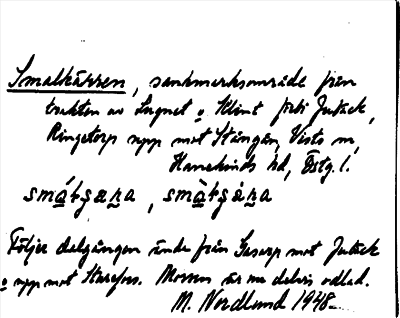 Smalkärren, sankmarksområde från
trakten av Lugnet o. Klint förbi Jutäck,
Ringetorp upp mot Stångån, Vists sn,
Hanekinds hd, Östg. l.
Följer dalgången ände från mot Jutäck
o upp mot Starefors. Mossen är nu delvis odlad.
M. Nordlund 1948